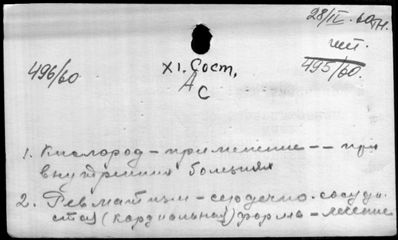 28/IV-60 тн.
шт.
496/60
XI. Сост.
495/60.
А
С
1. Кислород - применение -- при
внутренних болезнях
2. Ревматизм - сердечно-сосуди-
стая (кардиальная) форма - лечение